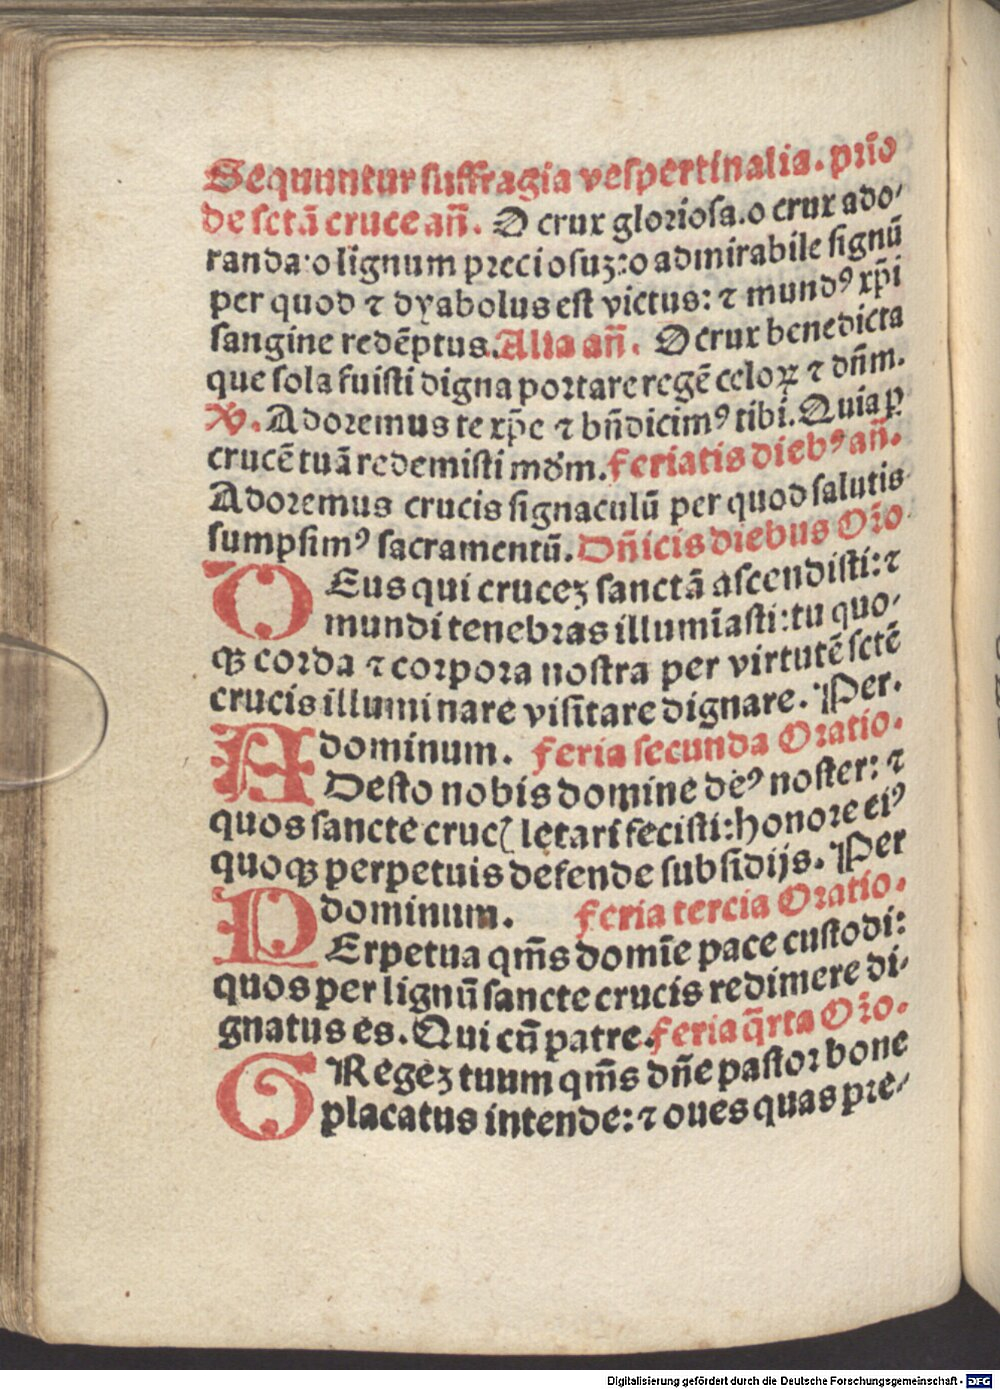 Sequuntur suffragia vespertinalia. prı̄o
de sctā cruce añ. O crux gloriosa. o crux ado⸗
randa: o lignum preciosuꝫ: o admirabile signū
per quod ⁊ dyabolus est victus: ⁊ mundꝰ xp̄i
sangine redēptus. Alia añ. O crux benedicta
que sola fuisti digna portare regē celoꝝ ⁊ dñm.
℣. Adoremus te xp̄e ⁊ bñdicimꝰ tibi. Quia ꝑ
crucē tuā redemisti mūdm. Feriatis diebꝰ añ.
Adoremus crucis signaculū per quod salutis
sumpsimꝰ sacramentū. Dñicis diebus Orō
DEus qui cruceꝫ sanctā ascendisti: ⁊
mundi tenebras illumīasti: tu quo⸗
qꝫ corda ⁊ corpora nostra per virtutē sctē
crucis illuminare visitare dignare. Per.
dominum. Feria secunda Oratio.
ADesto nobis domine deꝰ noster: ⁊
quos sancte crucꝭ letari fecisti: honore eiꝰ
quoqꝫ perpetuis defende subsidijs. Per
dominum. Feria tercia Oratio.
PErpetua qm̄s domīe pace custodi:
quos per lignū sancte crucis redimere di⸗
gnatus es. Qui cū patre. Feria q̄rta Orō.
GRegeꝫ tuum qm̄s dñe pastor bone
placatus intende: ⁊ oues quas pre⸗
Digitalisierung gefördert durch die Deutsche Forschungsgemeinschaft - DFG